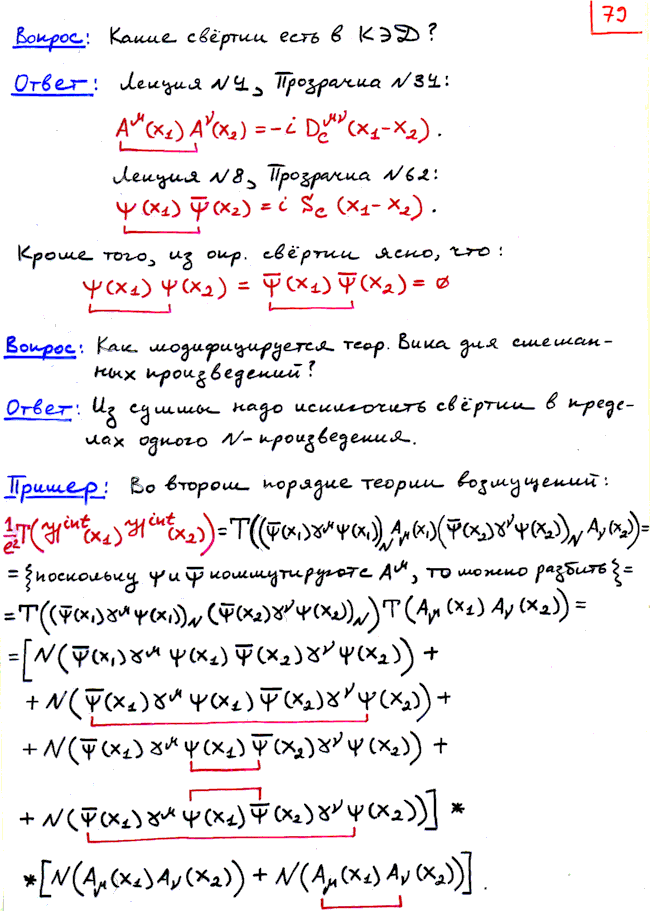 79
Вопрос: Какие свёртки есть в КЭД?
Ответ: Лекция N4, Прозрачка N34:
A^μ(x₁) A^ν(x₂) = -i D_c^{μν}(x₁-x₂).
Лекция N8, Прозрачка N62:
Ψ(x₁) Ψ̄(x₂) = i S_c (x₁-x₂).
Кроме того, из опр. свёртки ясно, что:
Ψ(x₁) Ψ(x₂) = Ψ̄(x₁) Ψ̄(x₂) = 0
Вопрос: Как модифицируется теор. Вика для смешан-
ных произведений?
Ответ: Из суммы надо исключить свёртки в преде-
лах одного N-произведения.
Пример: Во втором порядке теории возмущений:
1/e² T(ℋ^{int}(x₁) ℋ^{int}(x₂)) = T((Ψ̄(x₁)γ^μ Ψ(x₁))_N A_μ(x₁) (Ψ̄(x₂)γ^ν Ψ(x₂))_N A_ν(x₂)) =
= {поскольку Ψ и Ψ̄ коммутируют с A^μ, то можно разбить} =
= T((Ψ̄(x₁)γ^μ Ψ(x₁))_N (Ψ̄(x₂)γ^ν Ψ(x₂))_N) T(A_μ(x₁) A_ν(x₂)) =
= [N(Ψ̄(x₁)γ^μ Ψ(x₁) Ψ̄(x₂)γ^ν Ψ(x₂)) +
+ N(Ψ̄(x₁)γ^μ Ψ(x₁) Ψ̄(x₂)γ^ν Ψ(x₂)) +
+ N(Ψ̄(x₁)γ^μ Ψ(x₁) Ψ̄(x₂)γ^ν Ψ(x₂)) +
+ N(Ψ̄(x₁)γ^μ Ψ(x₁) Ψ̄(x₂)γ^ν Ψ(x₂))] *
* [N(A_μ(x₁) A_ν(x₂)) + N(A_μ(x₁) A_ν(x₂))].